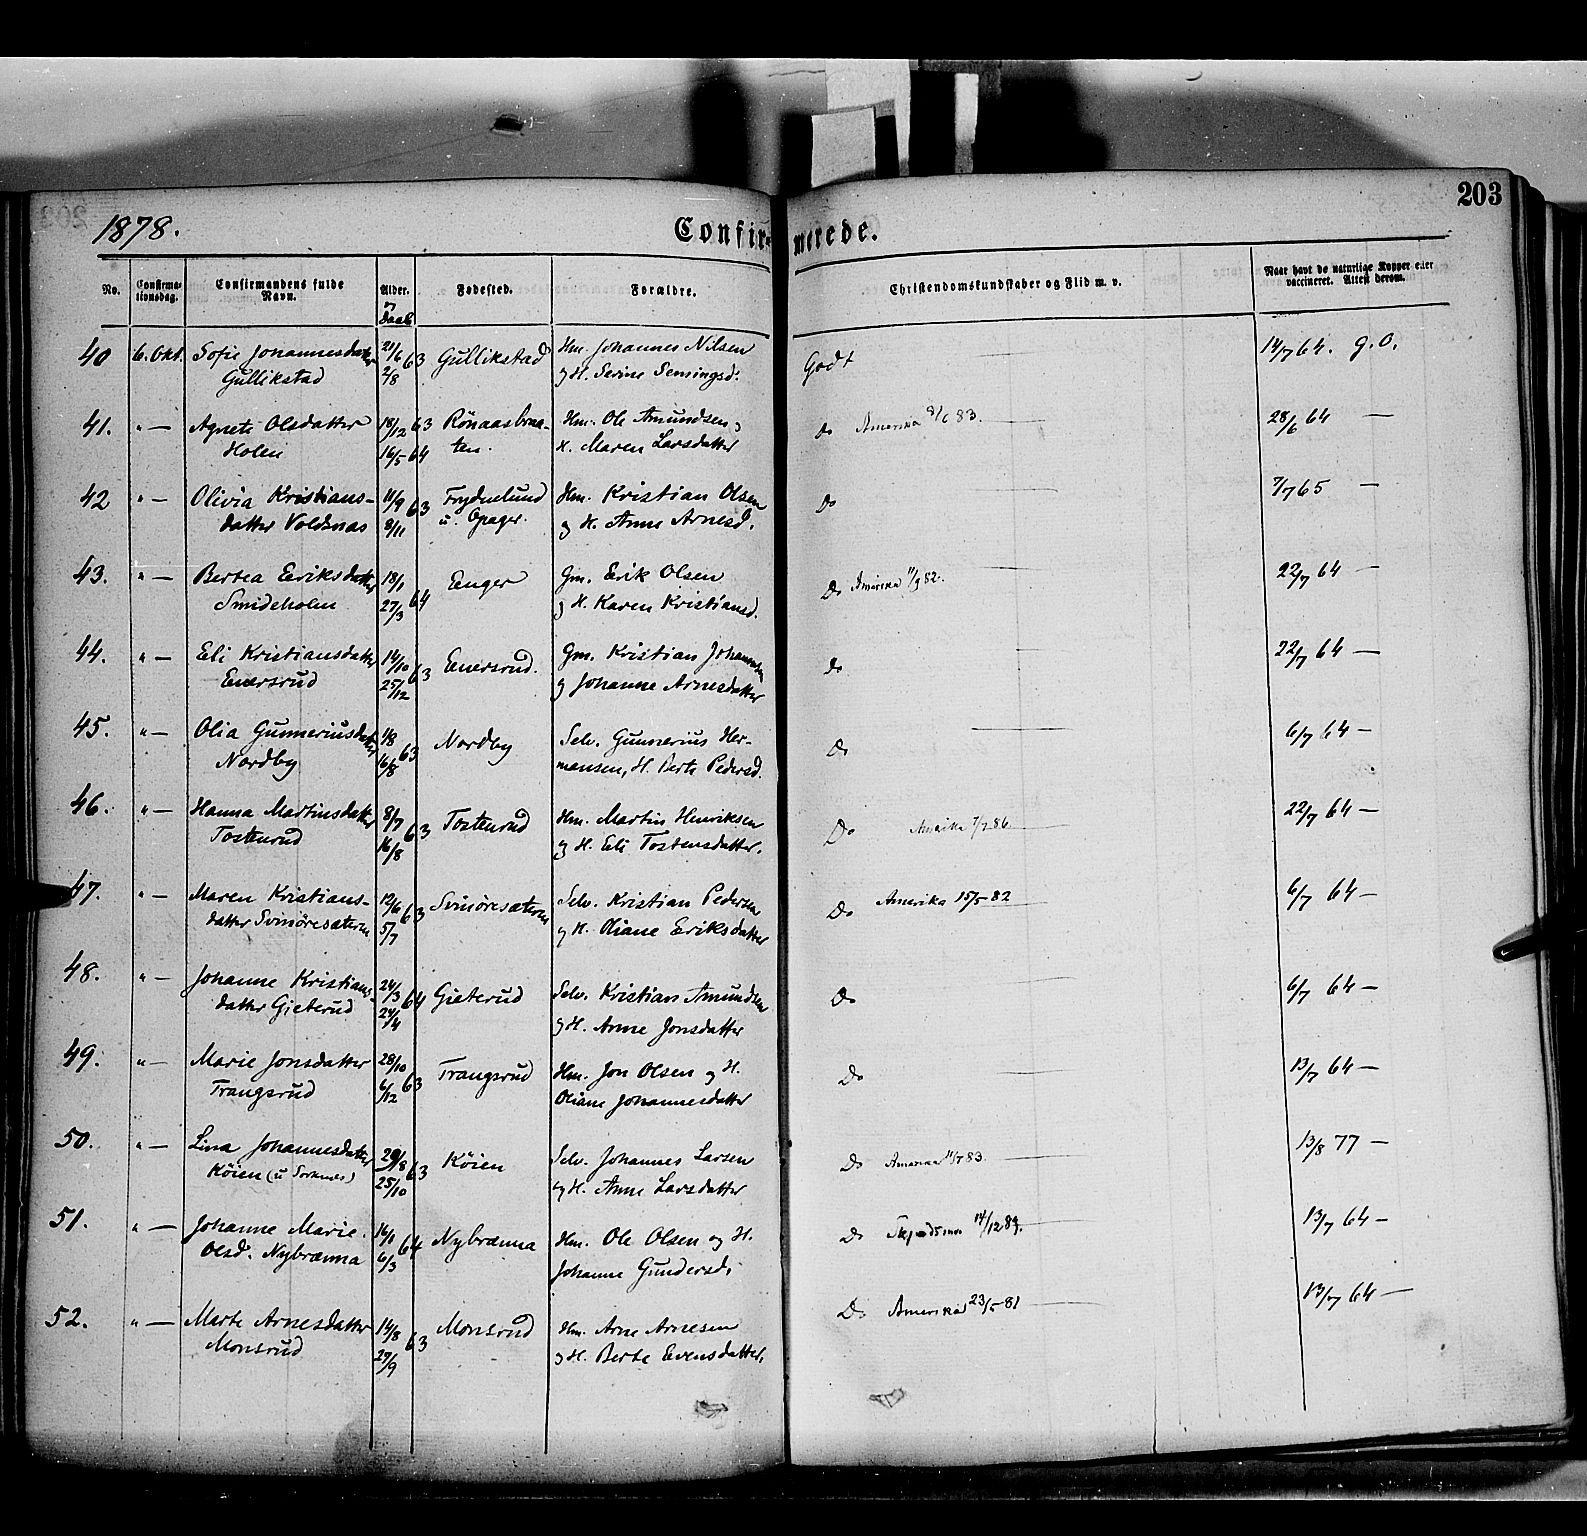 203
1878.
Confirmerede.
No.
Confirma-
tionsdag.
Confirmandens fulde
Navn.
Alder.
og
Daab
Fødested.
Forældre.
Christendomskundskaber og Flid m. v.
Naar havt de naturlige Kopper eller
vaccineret. Attest derom.
40 6. Okt. Sofie Johannesdatter 21/6 63 Gullikstad Hm. Johannes Nilsen Godt 14/7 64. g. O.
Gullikstad 2/8 og H. Serine Semingsd.
41. " — Agnete Olsdatter 18/12 63 Rönaasbraa- Hm. Ole Amundsen og Do Amerika 8/6 83. 28/6 64 —
Holen 16/5 64 ten. H. Maren Larsdatter
42 " — Olivia Kristians- 11/9 63 Frydenlund Hm. Kristian Olsen Do 7/7 65 —
datter Voldsnæs 8/11 u. Opager. og H. Anne Arnesd.
43. " — Bertea Eriksdatter 18/1 64 Enger Gm. Erik Olsen Do Amerika 11/9 82. 22/7 64 —
Smideholen 27/3 og H. Karen Kristiansd.
44. " — Eli Kristiansdatter 14/10 63 Enersrud. Gm. Kristian Johannesen Do 22/7 64 —
Enersrud 25/12 og Johanne Arnesdatter
45. " — Olia Gunneriusdatter 1/8 63 Nordby Selv. Gunnerius Her- Do 6/7 64 —
Nordby 16/8 mansen, H. Berte Pedersd.
46. " — Hanna Martinsdatter 8/7 63 Tostenrud Hm. Martin Henriksen Do Amerika 7/7 86. 22/7 64 —
Tostenrud 16/8 og H. Eli Tostensdatter.
47. " — Maren Kristians- 12/6 63 Svinöresæteren Selv. Kristian Pedersen Do Amerika 15/5-82 6/7 64 —
datter Svinöresæteren 5/7 og H. Oliane Eriksdatter
48. " — Johanne Kristians- 24/3 64 Gieterud Selv. Kristian Amundsen Do 6/7 64 —
datter Gieterud 24/4 og H. Anne Jonsdatter
49. " — Marie Jonsdatter 28/10 63 Trangsrud Hm. Jon Olsen og H. Do 13/7 64 —
Trangsrud 6/12 Oliane Johannesdatter
50. " — Lina Johannesdatter 29/8 63 Köien Selv. Johannes Larsen Do Amerika 11/7 83. 13/8 77 —
Köien (u Sorknes) 25/10 og H. Anne Larsdatter
51. " — Johanne Marie. 16/1 64 Nybrænna Hm. Ole Olsen og H. Do 14/12 89. 13/7 64 —
Olsd. Nybrænna 6/3 Johanne Gundersd.
52. " — Marte Arnesdatter 14/8 63 Monsrud Hm. Arne Arnesen Do Amerika 23/5-81 13/7 64 —
Monsrud 27/9 og H. Berte Evensdatter.